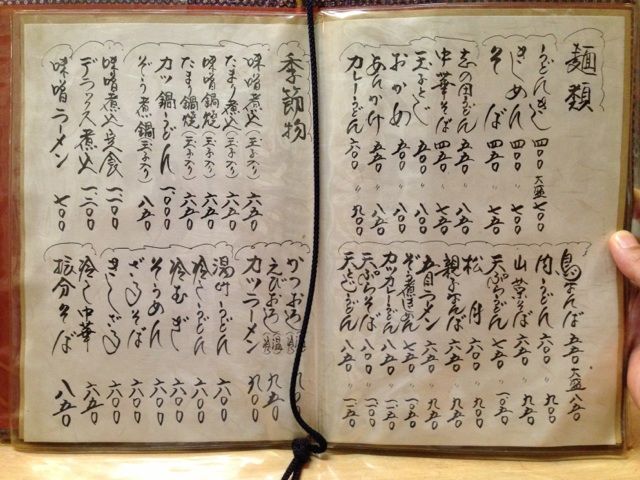 麺類
うどんきし 四〇〇 大盛 七〇〇
きしめん 四〇〇 〃 七〇〇
そば 四五〇 〃 七五〇
志の田うどん 五五〇 〃 八五〇
中華そば 四五〇 〃 七五〇
玉子とじ 五〇〇 〃 八〇〇
おかめ 五〇〇 〃 八〇〇
あんかけ 五〇〇 〃 八〇〇
カレーうどん 六〇〇 〃 九〇〇
鳥なんば 五五〇 大盛 八五〇
肉うどん 六〇〇 〃 九〇〇
山菜そば 六〇〇 〃 九〇〇
天ぷらうどん 七五〇 〃 一、〇五〇
松月 六〇〇 〃 九〇〇
親子なんば 六五〇 〃 九五〇
五目ラーメン 六五〇 〃 九五〇
ぞう煮きしめん
カツカレーうどん
天ぷらそば 八〇〇 〃 一、一〇〇
天とじうどん 八五〇 〃 一、一五〇
季節物
味噌煮込(玉子入り) 六五〇
たまり煮込(玉子入り) 六五〇
味噌鍋焼(玉子入り) 六五〇
たまり鍋焼(玉子入り) 六五〇
カツ鍋うどん 一、〇〇〇
ぞう煮鍋(玉子入り) 八五〇
味噌煮込定食 一、一〇〇
デラックス煮込 一、二〇〇
味噌ラーメン 七〇〇
かつおろし
えびおろし 九五〇
カツラーメン 九〇〇
湯竹うどん 六〇〇
冷しうどん 六〇〇
冷むぎ 六〇〇
そうめん 六〇〇
ざるそば 六〇〇
きしざる 六〇〇
冷し中華 六五〇
振分そば 八五〇